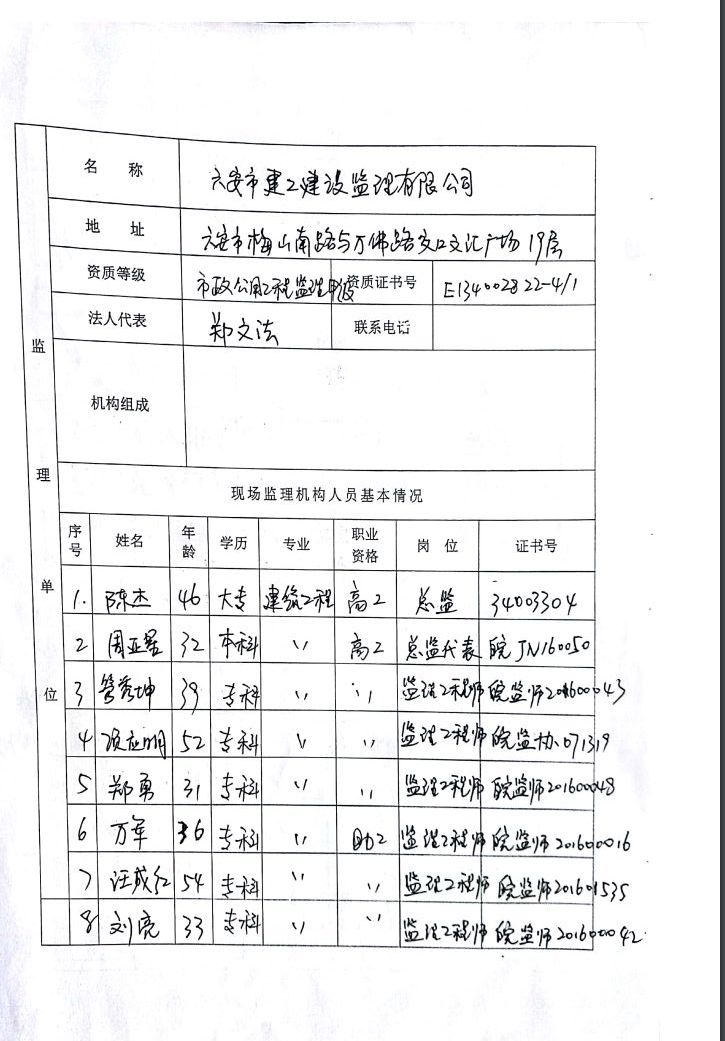 监理单位
名 称 六安市建工建设监理有限公司
地 址 六安市梅山南路与万佛路交口文汇广场19层
资质等级 市政公用工程监理甲级 资质证书号 E134002822-4/1
法人代表 郑文法 联系电话
机构组成
现场监理机构人员基本情况
序号 姓名 年龄 学历 专业 职业资格 岗 位 证书号
1. 陈杰 46 大专 建筑工程 高工 总监 34003304
2 周亚 32 本科 〃 高工 总监代表 皖JN160050
3 管秀坤 39 专科 〃 〃 监理工程师 皖监师201600043
4 项应明 52 专科 〃 〃 监理工程师 皖监协071319
5 郑勇 31 专科 〃 〃 监理工程师 皖监师201600048
6 万军 36 专科 〃 助工 监理工程师 皖监师201600016
7 汪成红 54 专科 〃 〃 监理工程师 皖监师201601535
8 刘亮 33 专科 〃 〃 监理工程师 皖监师201600042